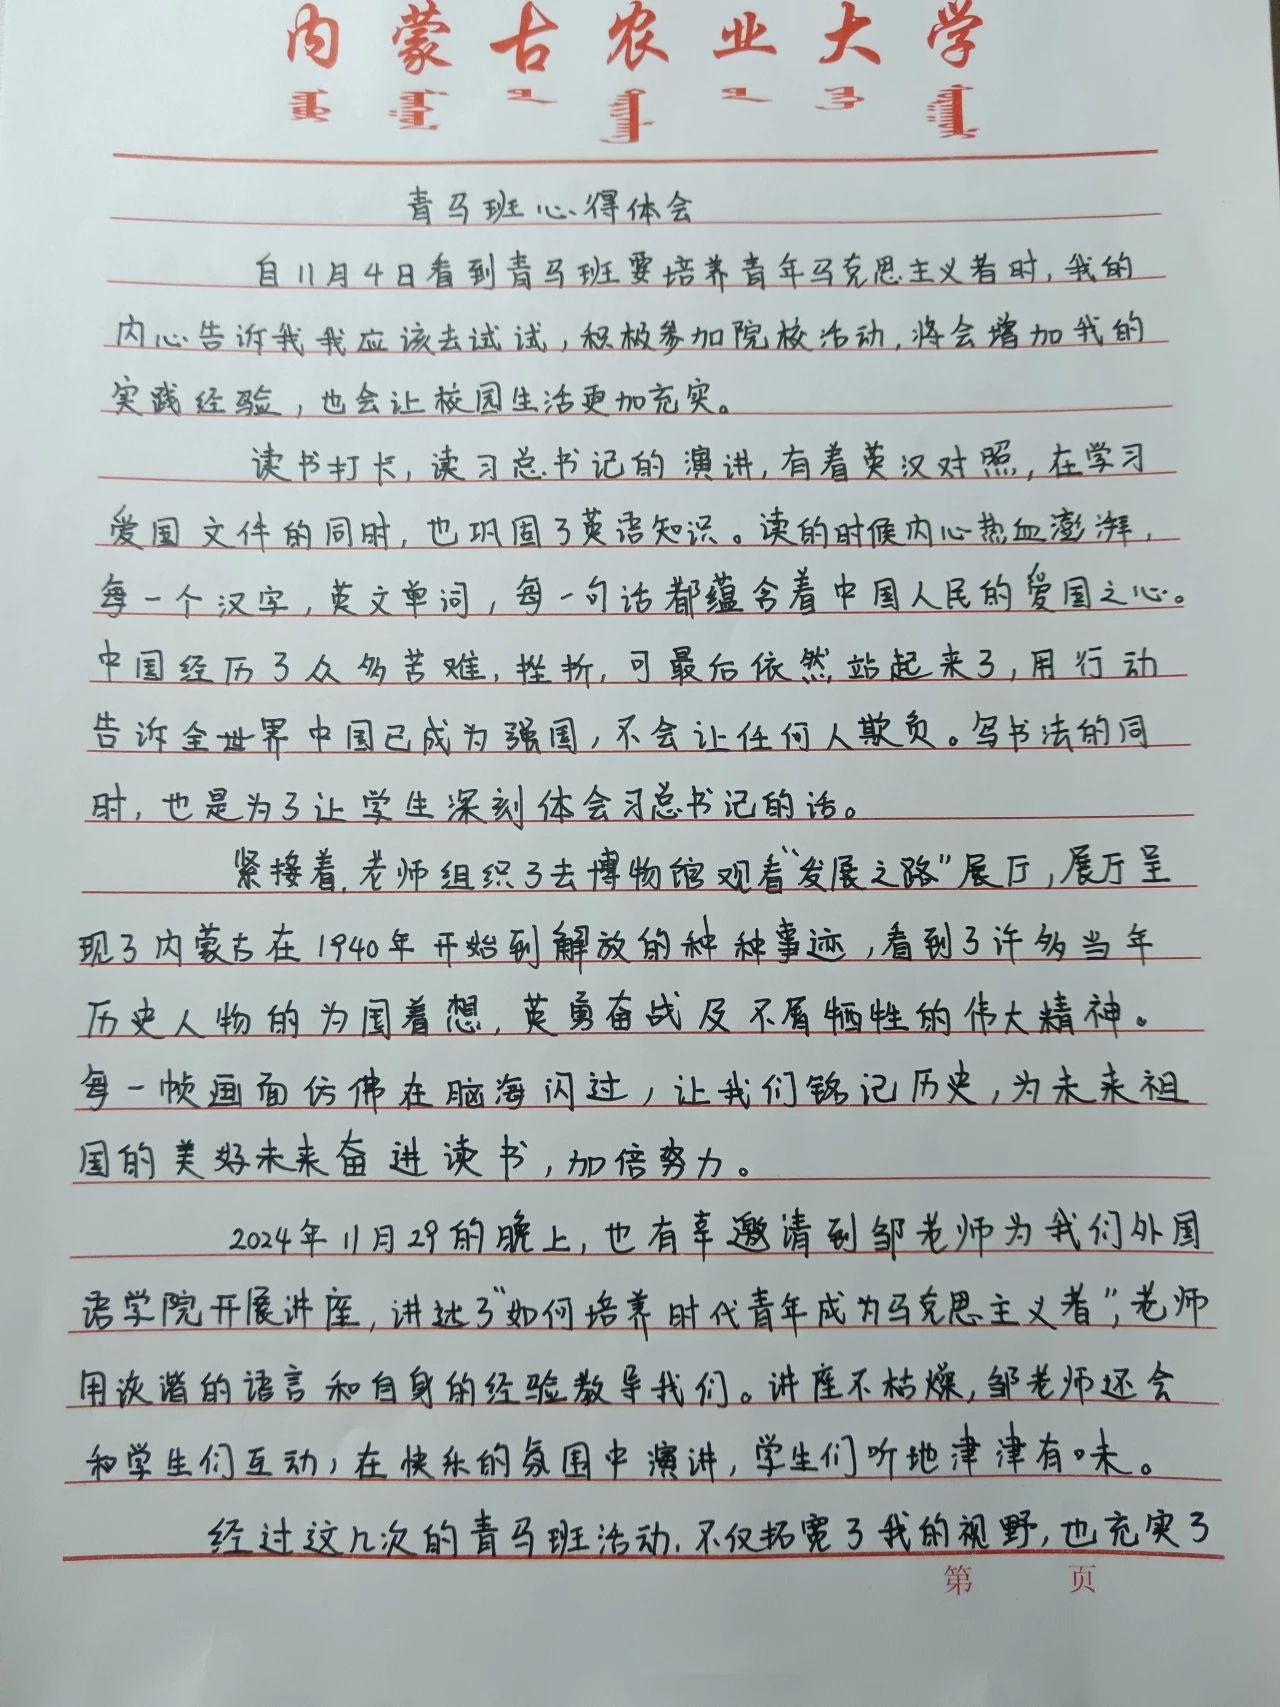 内蒙古农业大学
青马班心得体会
自11月4日看到青马班要培养青年马克思主义者时,我的
内心告诉我我应该去试试,积极参加院校活动,将会增加我的
实践经验,也会让校园生活更加充实。
读书打卡,读习总书记的演讲,有着英汉对照,在学习
爱国文件的同时,也巩固了英语知识。读的时候内心热血澎湃,
每一个汉字,英文单词,每一句话都蕴含着中国人民的爱国之心。
中国经历了众多苦难,挫折,可最后依然站起来了,用行动
告诉全世界中国已成为强国,不会让任何人欺负。写书法的同
时,也是为了让学生深刻体会习总书记的话。
紧接着,老师组织了去博物馆观看“发展之路”展厅,展厅呈
现了内蒙古在1940年开始到解放的种种事迹,看到了许多当年
历史人物的为国着想,英勇奋战及不屑牺牲的伟大精神。
每一帧画面仿佛在脑海闪过,让我们铭记历史,为未来祖
国的美好未来奋进读书,加倍努力。
2024年11月29的晚上,也有幸邀请到邹老师为我们外国
语学院开展讲座,讲述了“如何培养时代青年成为马克思主义者”,老师
用诙谐的语言和自身的经验教导我们。讲座不枯燥,邹老师还会
和学生们互动,在快乐的氛围中演讲,学生们听地津津有味。
经过这几次的青马班活动,不仅拓宽了我的视野,也充实了
第 页